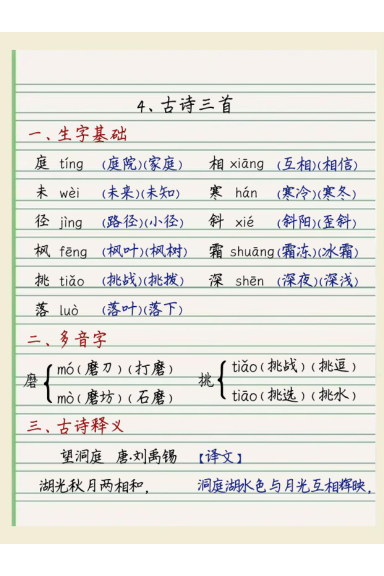 4、古诗三首
一、生字基础
庭 tíng (庭院)(家庭) 相 xiāng (互相)(相信)
未 wèi (未来)(未知) 寒 hán (寒冷)(寒冬)
径 jìng (路径)(小径) 斜 xié (斜阳)(歪斜)
枫 fēng (枫叶)(枫树) 霜 shuāng (霜冻)(冰霜)
挑 tiǎo (挑战)(挑拨) 深 shēn (深夜)(深浅)
落 luò (落叶)(落下)
二、多音字
磨 mó (磨刀)(打磨) 挑 tiǎo (挑战)(挑逗)
mò (磨坊)(石磨) tiāo (挑选)(挑水)
三、古诗释义
望洞庭 唐·刘禹锡 【译文】
湖光秋月两相和, 洞庭湖水色与月光互相辉映,